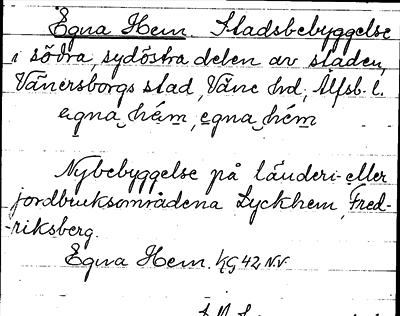 Egna Hem. Stadsbebyggelse
i södra, sydöstra delen av staden,
Vänersborgs stad, Väne hd, Älfsb. l.
egna hém, egna hém
Nybebyggelse på länderi- eller
jordbruksområdena Lyckhem, Fred-
-riksberg.
Egna Hem. KG 42 NV